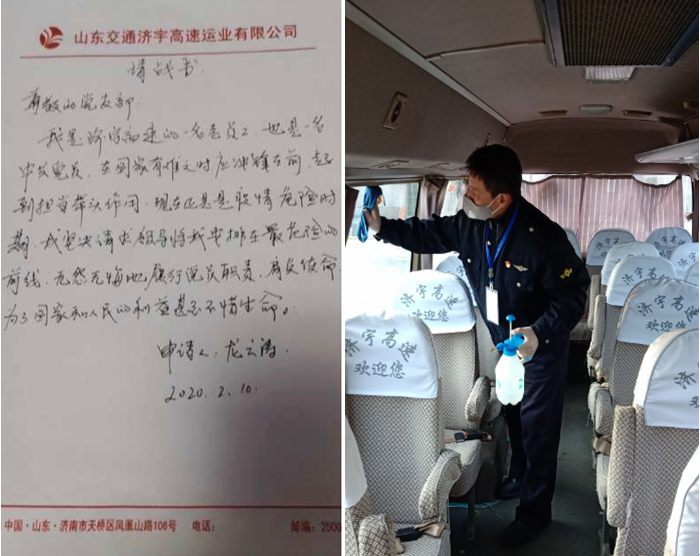 山东交通济宇高速运业有限公司
请战书
尊敬的党支部
我是济宇高速的一名老员工,也是一名
中共党员,在国家有难之时应冲锋在前,起
到担当带头作用。现在正是是疫情危险时
期,我坚决请求领导将我安排在最危险的
前线,无怨无悔地履行党员职责,肩负使命
为了国家和人民的利益甚至不惜生命。
申请人:龙云涛.
2020.2.10.
中国·山东·济南市天桥区凤凰山路106号 电话: 邮编:2500
济宇高速
欢迎您
济宇高速
欢迎您
济宇高速
欢迎您
济宇高速
欢迎您